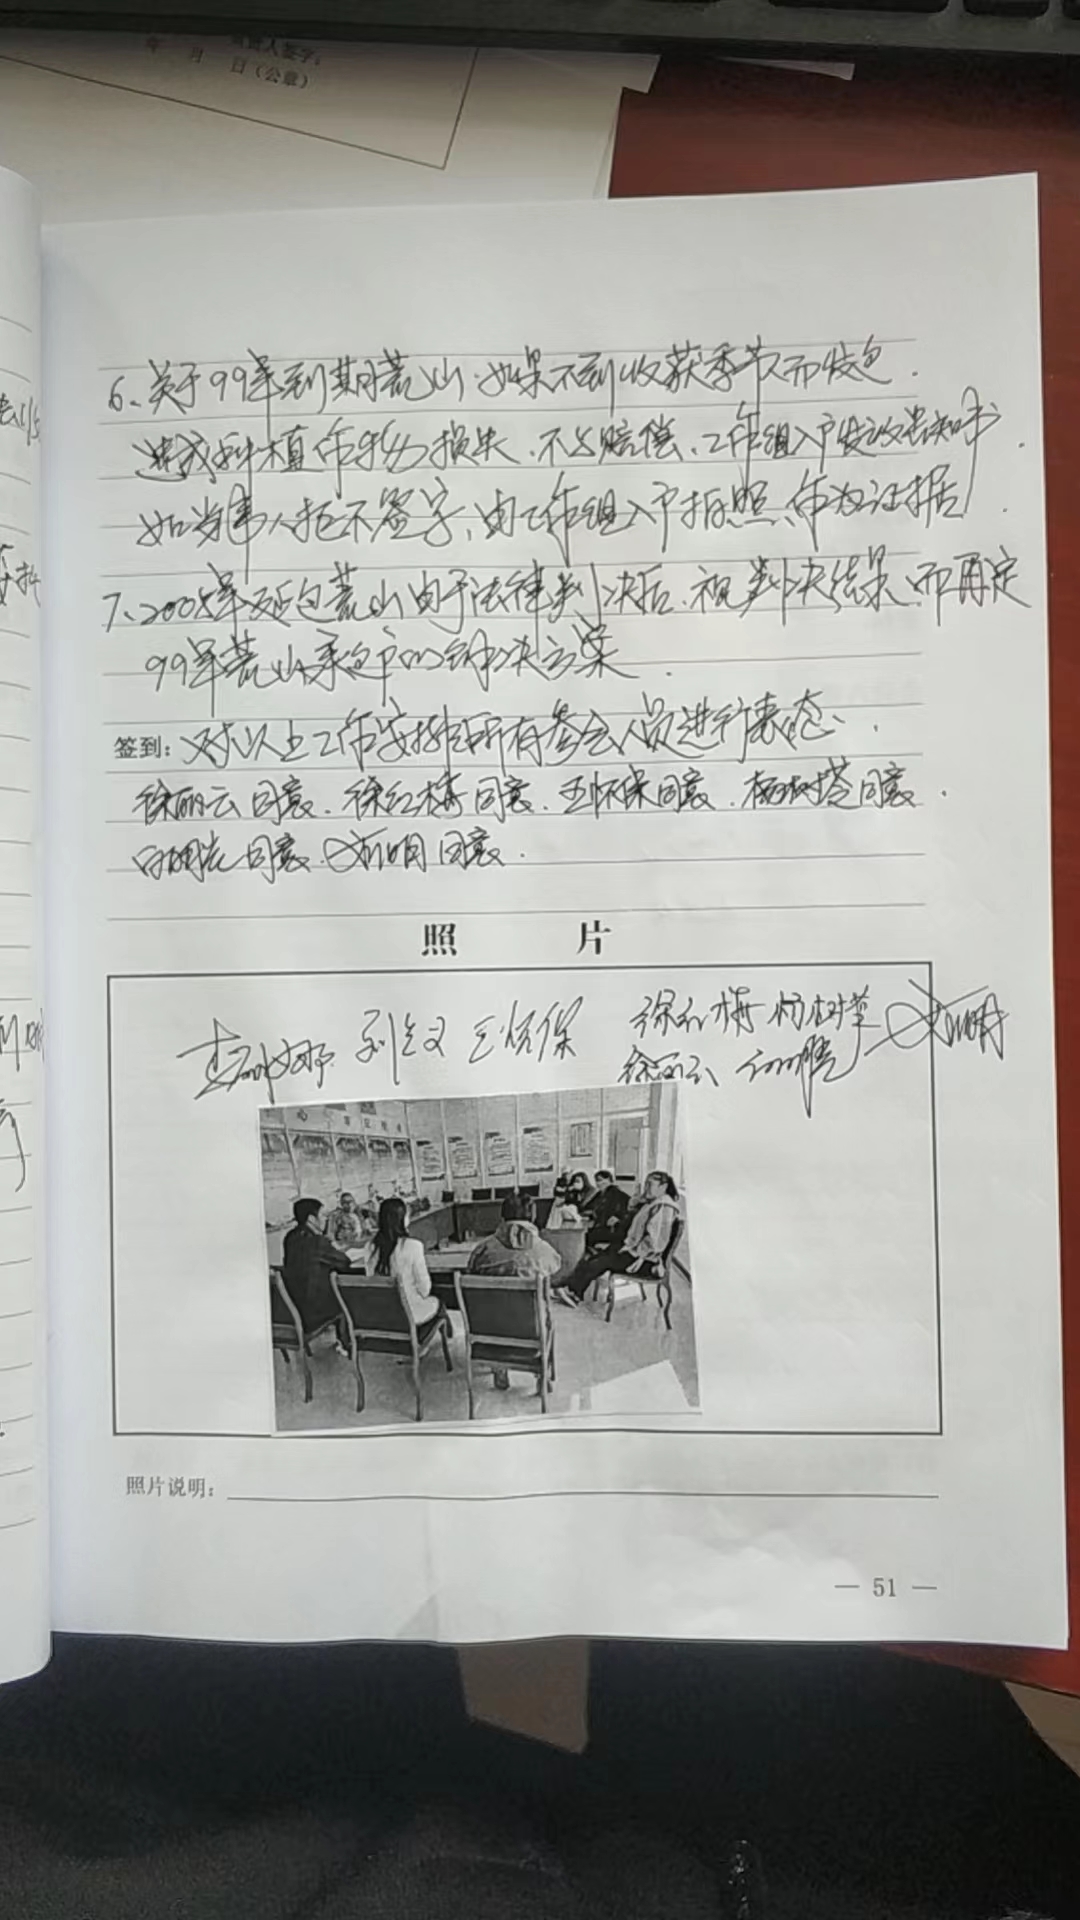 年 月 日（公章）
6、关于99年到期荒山，如果不到收获季节而发包，
造成种植作物损失，不与赔偿，工作组入户发放告知书，
如当事人拒不签字，由工作组入户拍照，作为证据。
7、2005年延包荒山由于法律判决后，视判决结果，而再定
99年荒山承包户的解决方案。
签到：对以上工作安排所有参会人员进行表态：
徐丽云同意，徐红梅同意，王怀保同意，杨树苓同意，
同意，明同意。
照 片
王怀保 徐红梅 杨树苓
徐丽云
照片说明：
— 51 —